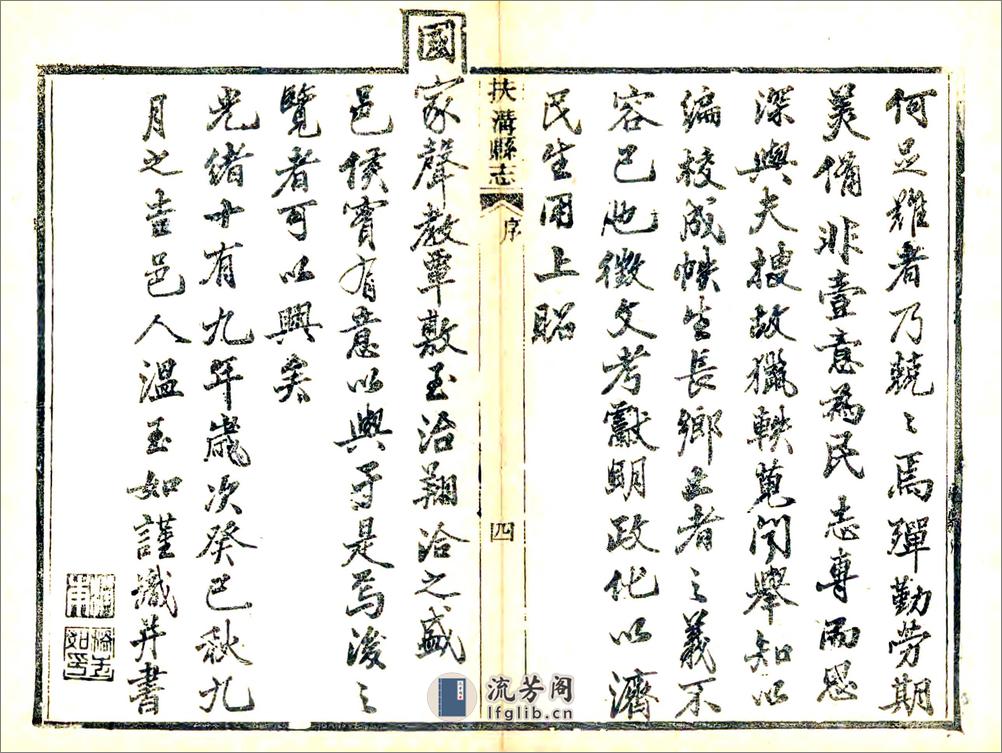 何足難者乃兢〻焉殫勤勞期
美備非壹意為民志專而思
深與夫搜故獵軼蒐聞舉知以
編校成帙生長鄉土者之義不
容已也徵文考獻明政化以濟
民生用上昭
扶溝縣志 序 四
國家聲教覃敷玉洽翔洽之盛
邑侯實有意以興于是焉後之
覽者可以興矣
光緒十有九年歲次癸巳秋九
月之吉邑人溫玉如謹識并書
流芳阁
lfglib.cn